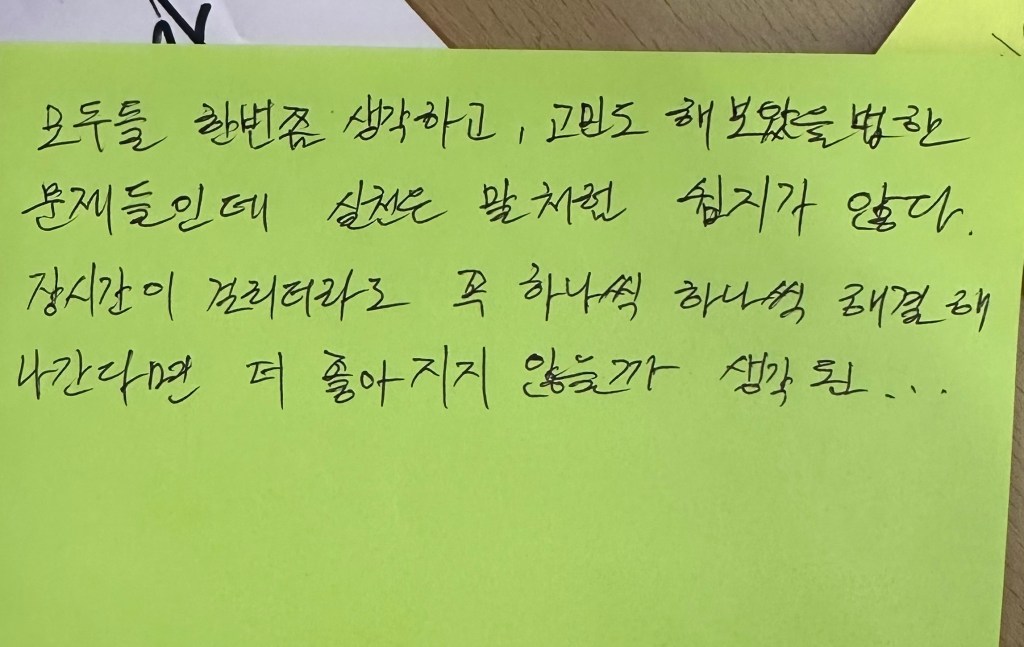 모두들 한번쯤 생각하고, 고민도 해 보았을 법한
문제들인데 실천은 말처럼 쉽지가 않다.
장시간이 걸리더라도 꼭 하나씩 하나씩 해결해
나간다면 더 좋아지지 않을까 생각 된...